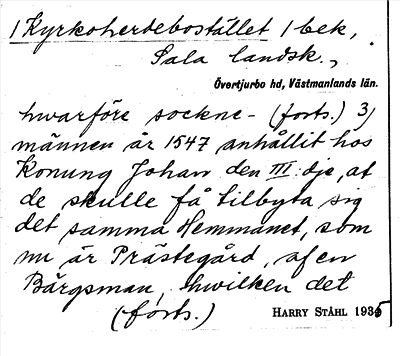 /Kyrkoherdebostället/ bek,
Sala landsk.,
Övertjurbo hd, Västmanlands län.
hvarföre sockne- (forts.) 3)
männen år 1547 anhållit hos
Konung Johan den III:dje, at
de skulle få tilbyta sig
det samma Hemmanet, som
nu är Prästegård, af en
Bärgsman, hwilken det
(forts.)
HARRY STÅHL 1935